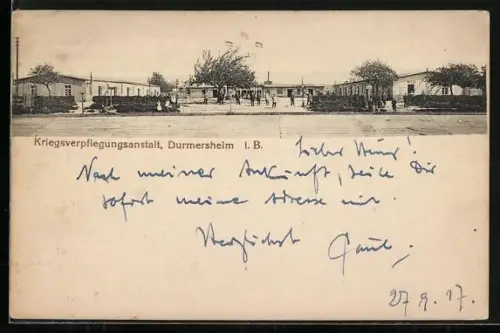 Kriegsverpflegungsanstalt, Durmersheim i. B.
Lieber Heinz!
Nach meiner Ankunft, teile Dir
sofort meine Adresse mit.
Herzlichst
Paul.
27 9. 17.